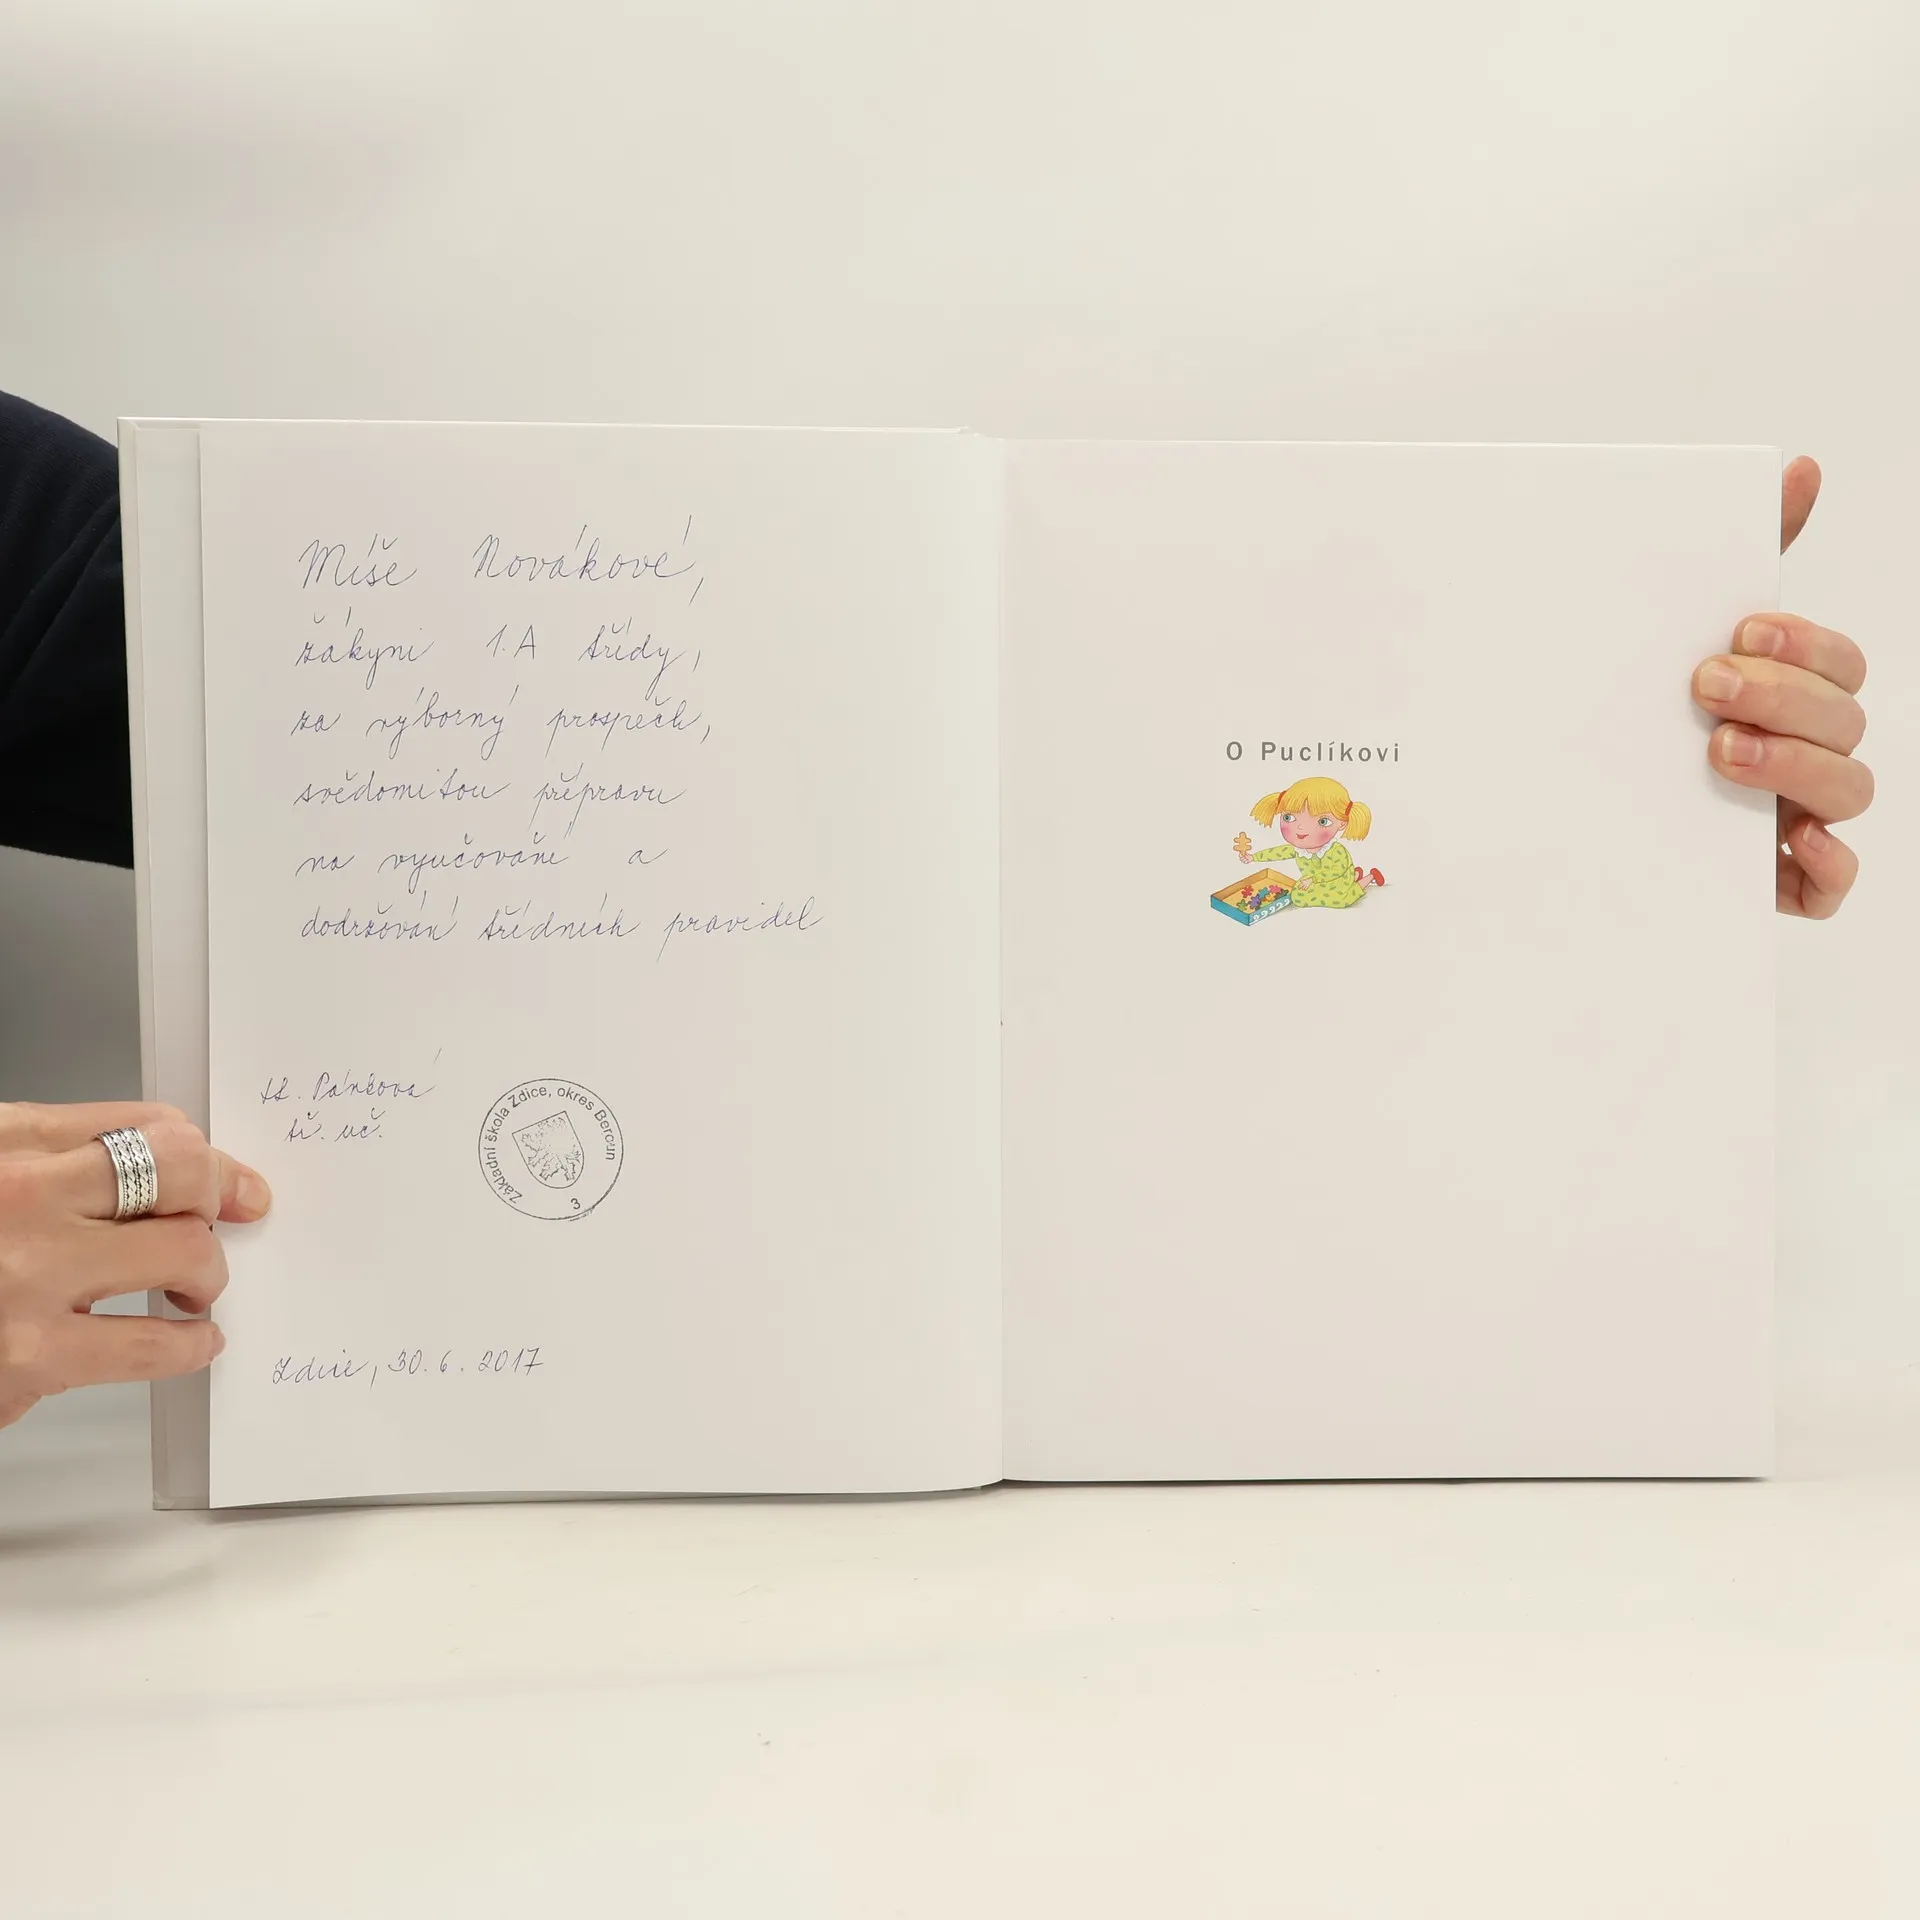 Míše Novákové,
žákyni 1.A třídy,
za výborný prospěch,
svědomitou přípravu
na vyučování a
dodržování třídních pravidel
Pánková
tř. uč.
Základní škola Zdice, okres Beroun
3
Zdice, 30. 6. 2017
O Puclíkovi